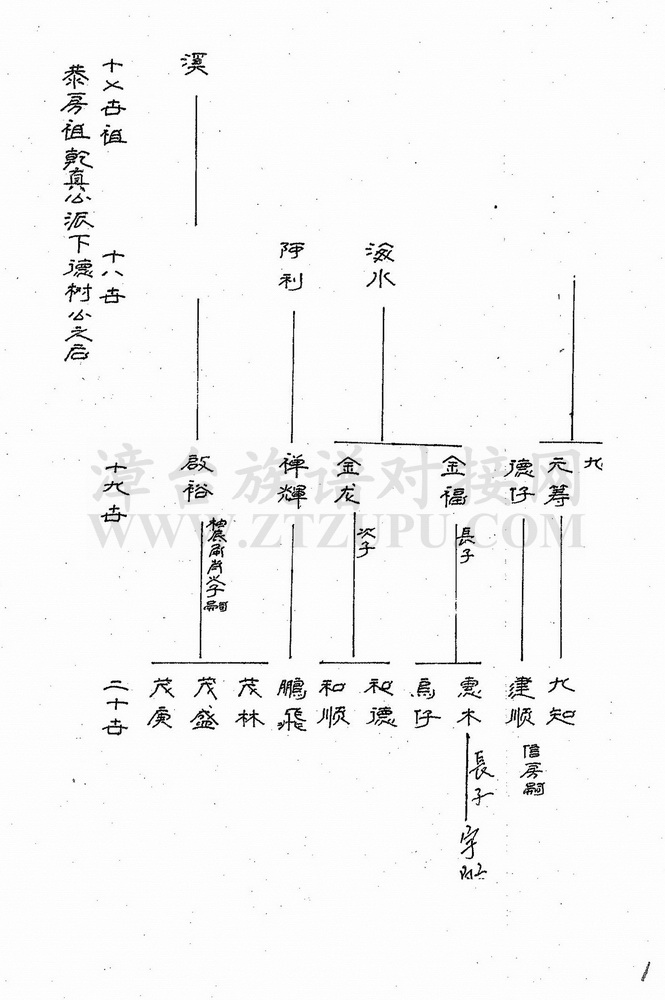 十乂世祖
泰房祖乾真公派下德树公之后
溪
十八世
阿利
海水
十九世
啟裕
禅輝
金龙
次子
金福
長子
德仔
元筹
九
二十世
茂庚
茂盛
茂林
鵬飛
和順
和德
烏仔
惠木
長子
建順
信房嗣
九知
漳台族谱对接网
WWW.ZTZUPU.COM
1